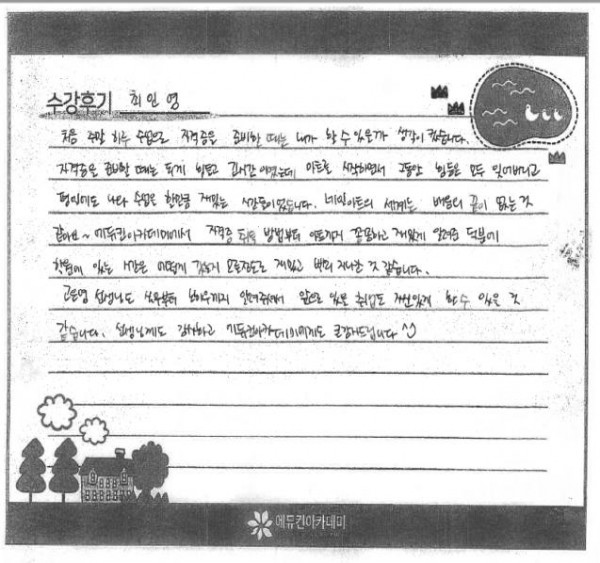 수강후기 최인영
처음 주말 하루 수업으로 자격증을 준비한 때는 내가 할 수 있을까 생각이 컸습니다.
자격증을 준비할 때에는 되게 힘들고 긴시간 이었는데 아트로 시작하면서 그동안 힘들은 모두 잊어버리고
평일에도 나와 수업을 한만큼 재밌는 시간들이었습니다. 네일아트의 세계는 배움의 끝이 없는 것
같아요~ 에듀킨아카데미에서 자격증 취득 방법부터 아트까지 꼼꼼하고 재밌게 알려준 덕분에
학원에 있는 시간은 어떻게 갔는지 모를정도로 재밌고 빨리 지나간 것 같습니다.
선생님도 알려주셔서 앞으로 있을 취업도 자신있게 할 수 있을 것
같습니다. 선생님께도 감사하고 에듀킨아카데미에게도 감사드립니다
에듀킨아카데미